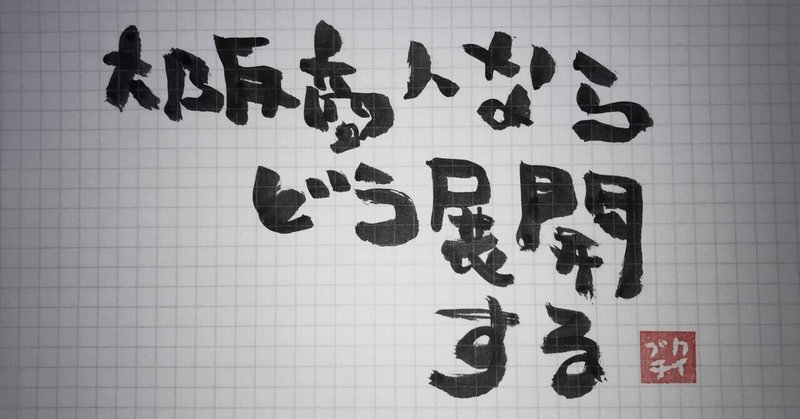 大阪商人なら
どう展開
する
クイ
ブチ